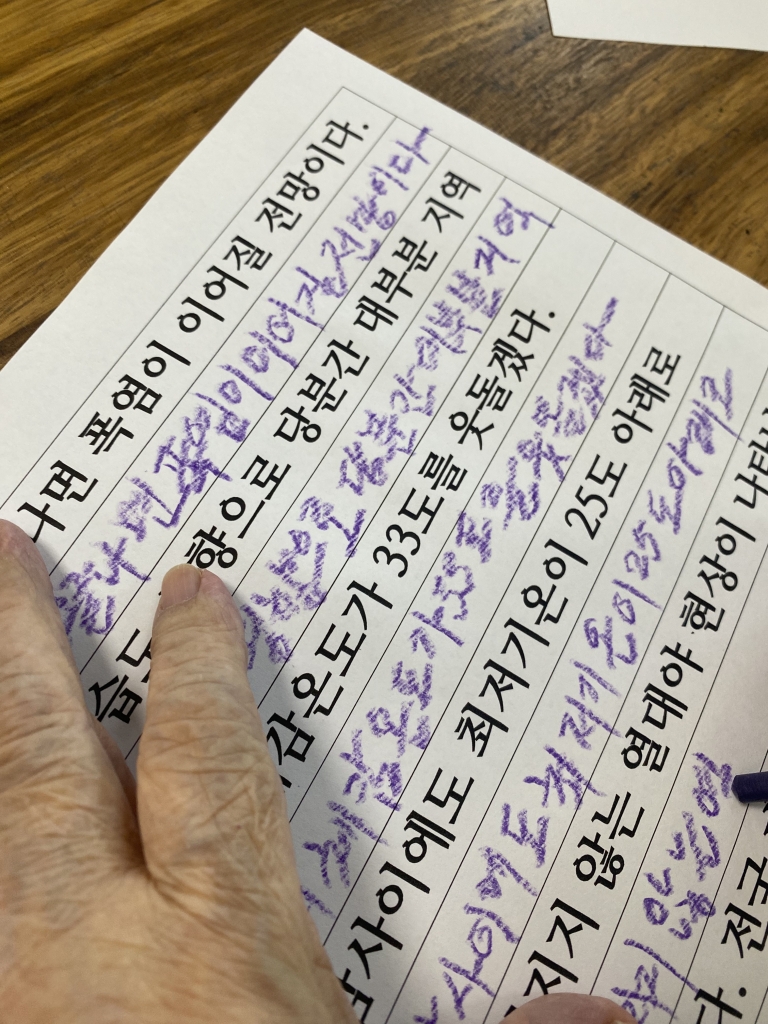 나면 폭염이 이어질 전망이다.
나면 폭염이 이어질 전망이다
습도 향으로 당분간 대부분 지역
영향으로 당분간 대부분 지역
감온도가 33도를 웃돌겠다.
체감온도가 33도를 웃돌겠다
사이에도 최저기온이 25도 아래로
사이에도 최저기온이 25도 아래로
지지 않는 열대야 현상이 나타
지 않는 열
다. 전국